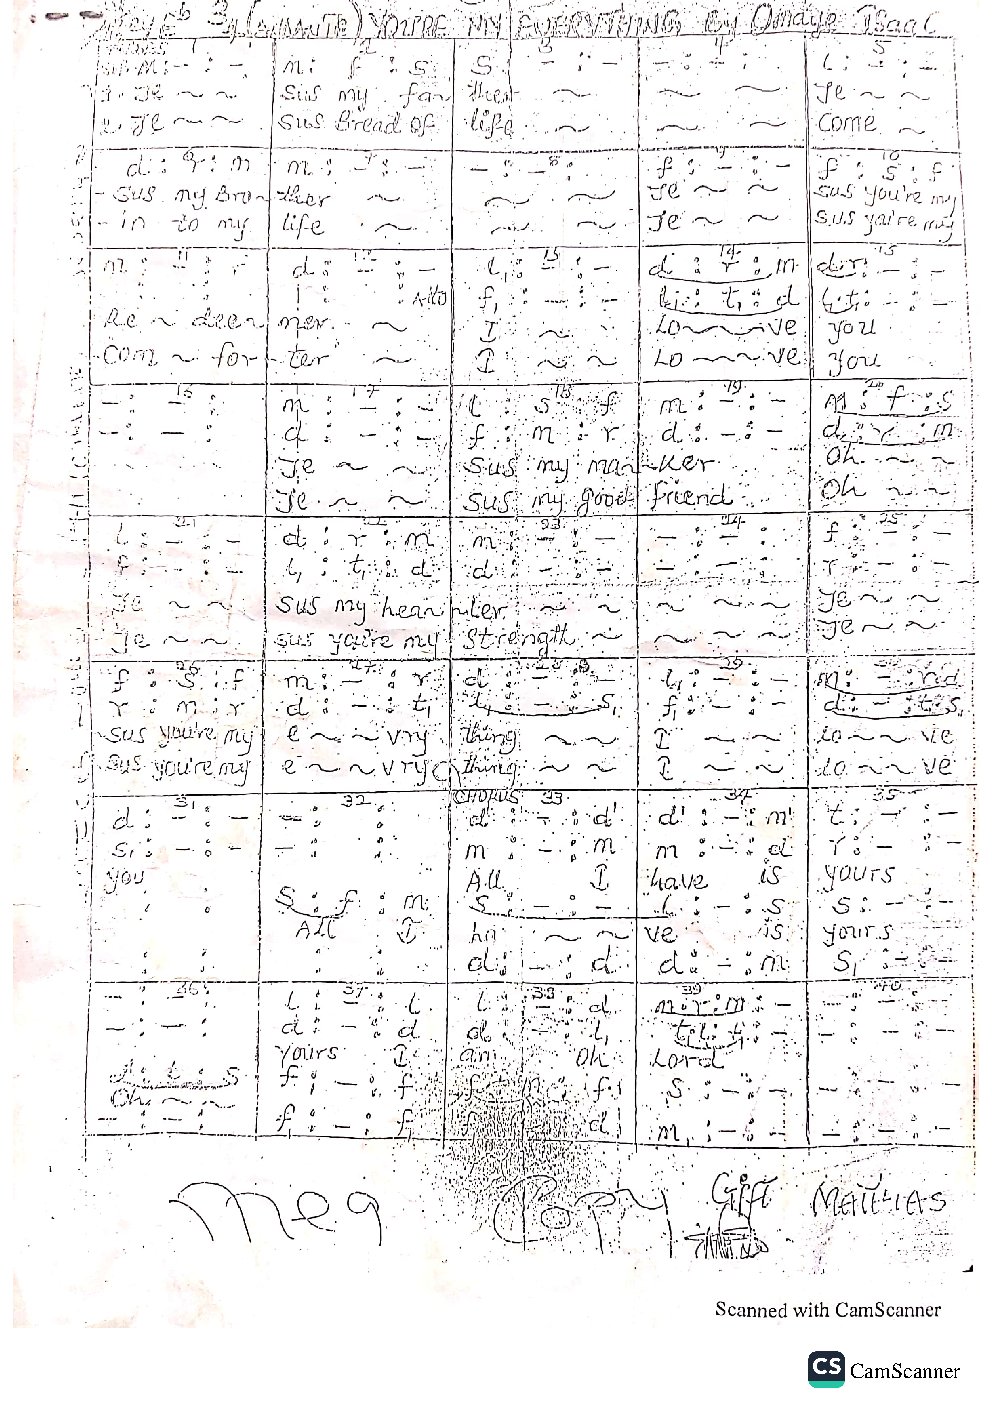 3/4 (ANDANTE) YOU'RE MY EVERYTHING By Omaye Isaac
1 2 3 4 5
m: f : s | s : - : - | - : - : - | l : - : -
1. Je ~ ~ | sus my fa | ther ~ ~ | ~ ~ | Je ~ ~
2. Je ~ ~ | sus Bread of | life ~ ~ | ~ ~ | Come ~
6 7 8 9 10
d : r : m | m : - : - | - : - : | f : - : - | f : s : f
- sus my Bro | ther ~ | ~ ~ | Je ~ ~ | sus you're my
- in to my | life ~ | ~ ~ | Je ~ ~ | sus you're my
11 12 13 14 15
m : - : r | d : - : - | l₁ : - : - | d : r : m | d.r : - : -
: : Alto | f₁ : - : - | l₁ : t₁ : d | l₁.t₁ : - : -
Re ~ deem | mer ~ | I ~ ~ | Lo~~~ve | you
Com ~ for | ter ~ | I ~ ~ | Lo~~~ve | you
16 17 18 19 20
- : - : | m : - : - | l : s : f | m : - : - | m : f : s
- : - : | d : - : - | f : m : r | d : - : - | d : r : m
Je ~ ~ | sus my ma | ker | Oh ~ ~
Je ~ ~ | sus my good | friend | Oh ~ ~
21 22 23 24 25
l : - : - | d : r : m | m : - : - | - : - : - | f : - : -
f : - : - | l₁ : t₁ : d | d : - : - | - : - : - | r : - : -
Je ~ ~ | sus my hea | ler ~ ~ | ~ ~ ~ | Je ~ ~
Je ~ ~ | sus you're my | strength ~ | ~ ~ ~ | Je ~ ~
26 27 28 29 30
f : s : f | m : - : r | d : - : - | l₁ : - : - | m : - : r.d
r : m : r | d : - : t₁ | l₁ : - : s₁ | f₁ : - : - | d : - : t₁.s₁
sus you're my | e ~ ~ vry | thing ~ ~ | I ~ ~ | lo ~ ~ ve
sus you're my | e ~ ~ vry | thing ~ ~ | I ~ ~ | Lo ~ ~ ve
31 32 CHORUS 33 34 35
d : - : - | - : : | d' : - : d' | d' : - : m' | t : - : -
s₁ : - : - | - : : | m : - : m | m : - : d | r : - : -
you | All I | have is | yours
: : | s : f : m | s : - : - | l : - : s | s : - : -
All I | ha ~ ~ | ve is | yours
: : | : : | d : - : d | d : - : m | s₁ : - : -
36 37 38 39 40
- : - : | l : : l | l : - : d | m.r:m : - | - : - : -
- : - : | d : - : d | d : - : l₁ | - : - : -
yours I | am Oh | Lord
: : s | f₁ : - : f | s : - : - | - : - : -
Oh ~ ~
- : - : - | f₁ : - : f₁ | m₁ : - : - | - : - : -
Meg Copy Gift MATHIAS
Scanned with CamScanner
CS CamScanner